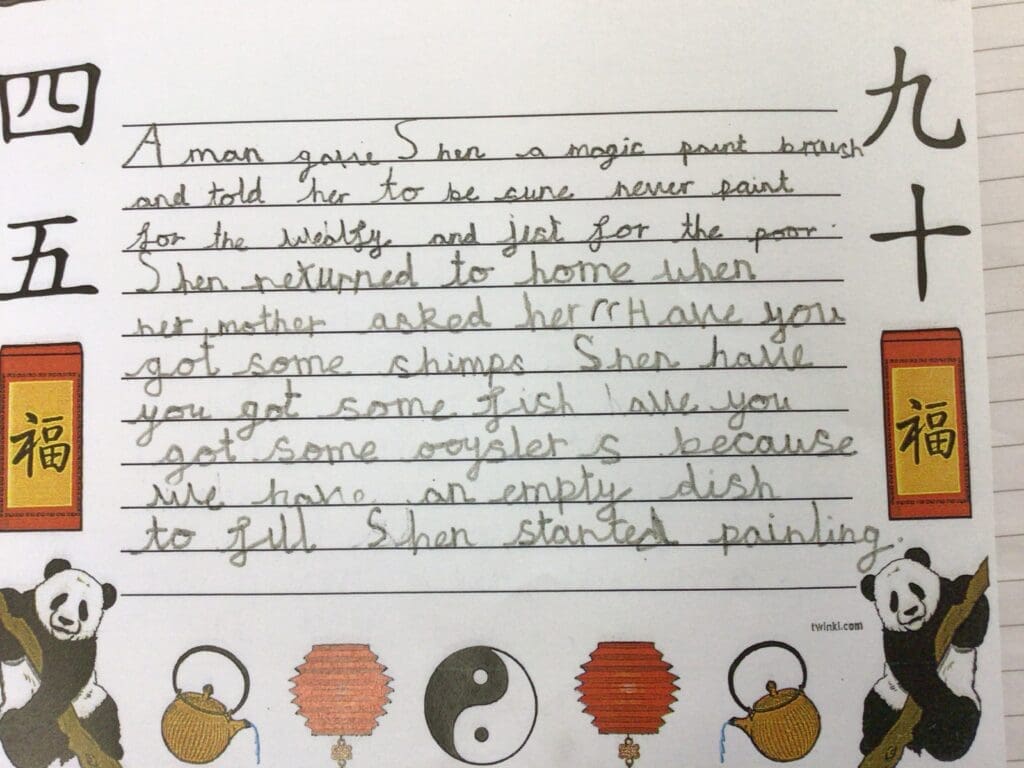 四 九
A man gave Shen a magic paint brush
and told her to be sure never paint
for the wealfy and jest for the poor.
五 十
Shen returned to home when
her mother asked her "Have you
got some shimps Shen have
you got some fish have you
福 福
got some ooysters because
we have an empty dish
to fill Shen started painting.
twinkl.com